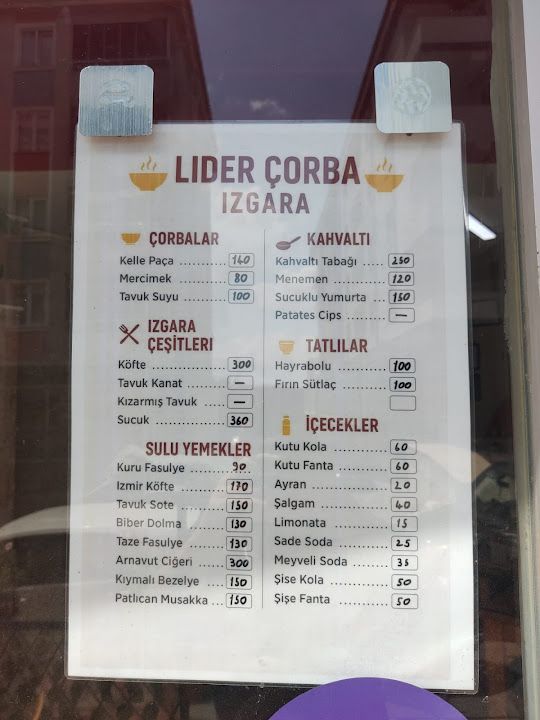 LIDER ÇORBA
IZGARA
ÇORBALAR
Kelle Paça ........... 140
Mercimek ........... 80
Tavuk Suyu ........... 100
IZGARA
ÇEŞİTLERİ
Köfte ........... 300
Tavuk Kanat ........... —
Kızarmış Tavuk ..... —
Sucuk ........... 360
SULU YEMEKLER
Kuru Fasulye ........... 90
Izmir Köfte ........... 170
Tavuk Sote ........... 150
Biber Dolma ........... 130
Taze Fasulye ........... 130
Arnavut Ciğeri ........ 300
Kıymalı Bezelye ...... 150
Patlıcan Musakka ... 150
KAHVALTI
Kahvaltı Tabağı ..... 250
Menemen ........... 120
Sucuklu Yumurta .... 150
Patates Cips ........ —
TATLILAR
Hayrabolu ........... 100
Fırın Sütlaç ........... 100
İÇECEKLER
Kutu Kola ........... 60
Kutu Fanta ........... 60
Ayran ........... 20
Şalgam ........... 40
Limonata ........... 15
Sade Soda ........... 25
Meyveli Soda ........ 35
Şise Kola ........... 50
Şişe Fanta ........... 50